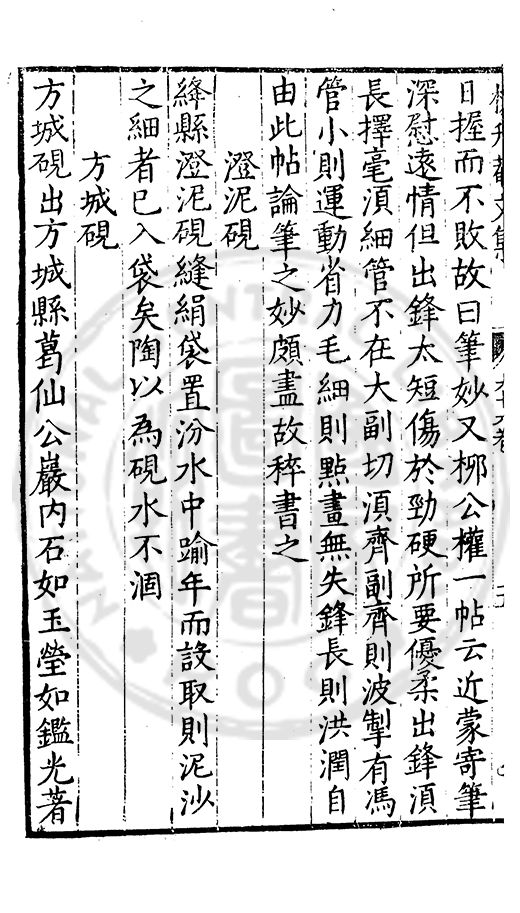 日握而不敗故曰筆妙又柳公權一帖云近蒙寄筆
深慰遠情但出鋒太短傷於勁硬所要優柔出鋒湏
長擇毫湏細管不在大副切湏齊副齊則波掣有馮
管小則運動省力毛細則點畫無失鋒長則洪潤自
由此帖論筆之妙頗盡故稡書之
澄泥硯
絳縣澄泥硯縫絹袋置汾水中踰年而後取則泥沙
之細者已入袋矣陶以為硯水不涸
方城硯
方城硯出方城縣葛仙公巖内石如玉瑩如鑑光著